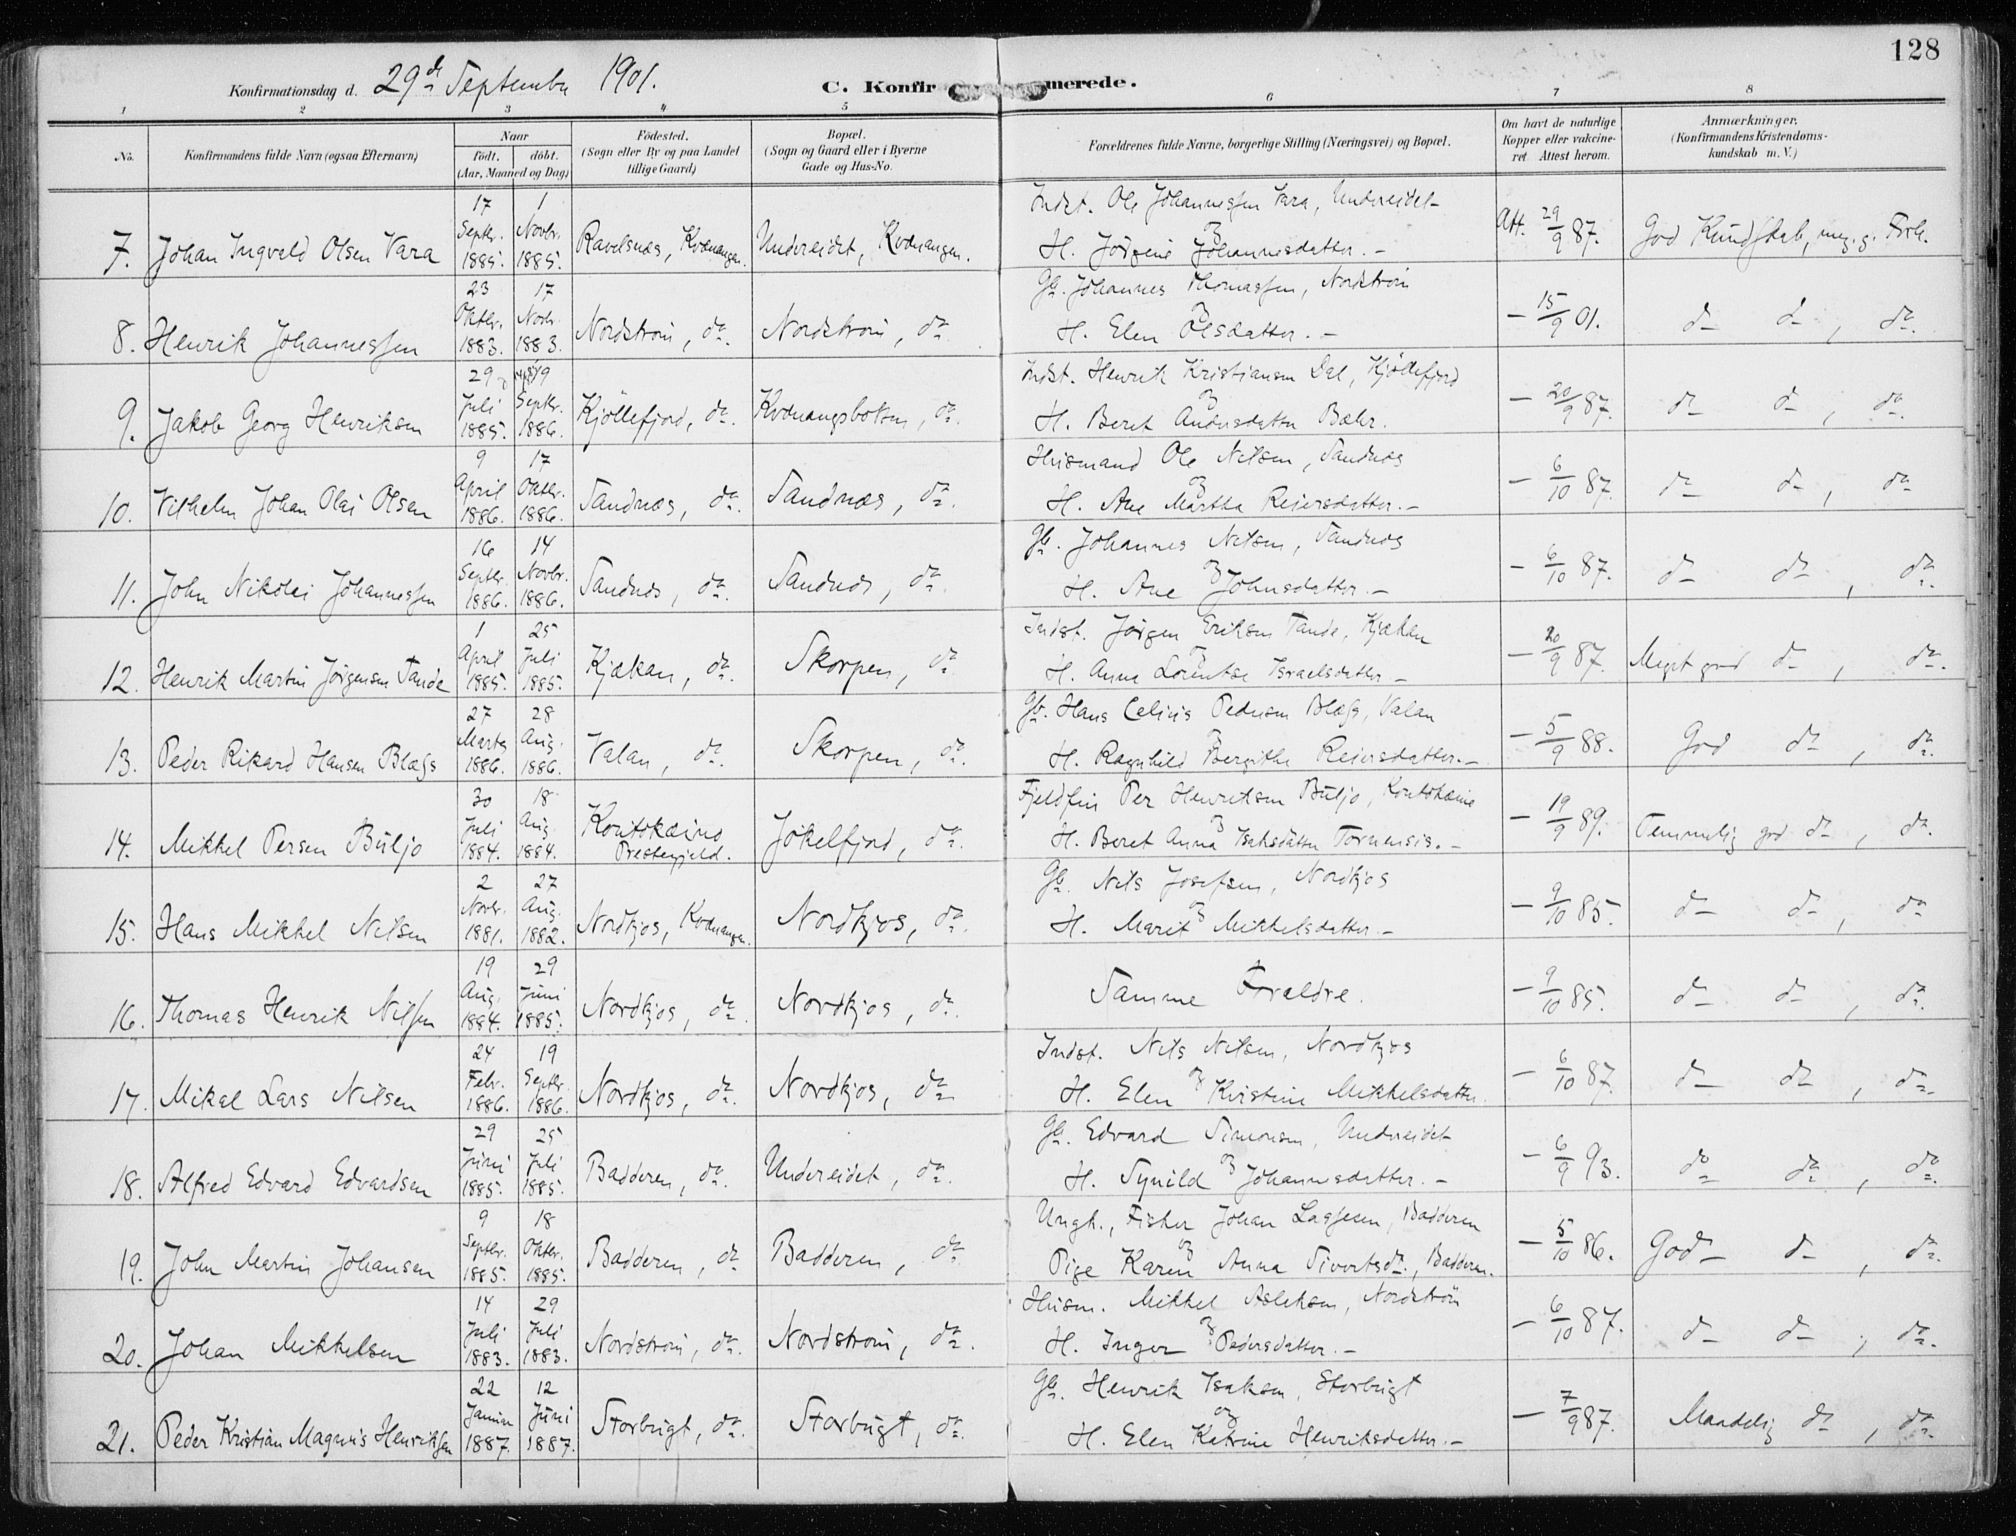 128
Konfirmationsdag d. 29de September 1901.
C. Konfirmerede.
1 2 3 4 5 6 7 8
No.
Konfirmandens fulde Navn (ogsaa Efternavn)
Naar
født. døbt.
(Aar, Maaned og Dag)
Fødested.
(Sogn eller By og paa Landet
tillige Gaard)
Bopæl.
(Sogn og Gaard eller i Byerne
Gade og Hus-No.
Forældrenes fulde Navne, borgerlige Stilling (Næringsvei) og Bopæl.
Om havt de naturlige
Kopper eller vakcine-
ret Attest herom.
Anmærkninger.
(Konfirmandens Kristendoms-
kundskab m. V.)
7. Johan Ingvald Olsen Vara
17 Septbr. 1885. 1 Novbr. 1885.
Ravelsnæs, Kvænangen. Undereidet, Kvænangen.
Indst. Ole Johannessen Vara, Undereidet
og
H. Jørgine Johannesdatter. –
Att. 29/9 87. God Kundskab, meg. g. Forh.
8. Henrik Johannessen
23 Oktbr. 1883. 17 Novbr. 1883.
Nordstrøm, do. Nordstrøm, do
Gb. Johannes Thomassen, Nordstrøm
og
H. Elen Olsdatter. –
– 15/9 01. do do, do.
9. Jakob Georg Henriksen
29 Juli 1885. 19 Septbr. 1886.
Kjøllefjord, do. Kvænangsbotn, do.
Indst. Henrik Kristiansen Dal, Kjøllefjord
og
H. Beret Andersdatter Bæhr.
– 20/9 87. do do, do.
10. Vilhelm Johan Olai Olsen
9 April 1886. 17 Oktbr. 1886.
Sandnæs, do. Sandnæs, do.
Husmand Ole Nilsen, Sandnæs
og
H. Ane Martha Reiersdatter. –
– 6/10 87. do do, do
11. John Nikolai Johannessen
16 Septbr. 1886. 14 Novbr. 1886.
Sandnæs, do. Sandnæs, do.
Gb. Johannes Nilsen, Sandnæs
og
H. Ane Johnsdatter. –
– 6/10 87. do do, do.
12. Henrik Martin Jørgensen Tande
1 April 1885. 25 Juli 1885.
Kjækan, do. Skorpen, do.
Indst. Jørgen Eriksen Tande, Kjækan
og
H. Anna Lorentse Israelsdatter –
– 20/9 87. Meget god do, do.
13. Peder Rikard Hansen Blæss
27 Marts 1886. 28 Aug. 1886.
Valan, do. Skorpen, do.
Gb. Hans Celius Pedersen Blæss, Valan
og
H. Ragnhild Bergithe Reiersdatter. –
– 5/9 88. God do, do.
14. Mikkel Persen Buljo
30 Juli 1884. 18 Aug. 1884.
Koutokæino Prestegjeld. Jøkelfjord, do.
Fjeldfin Per Henriksen Buljo, Koutokæino
og
H. Beret Anna Isaksdatter Tornensis. –
– 19/9 89. Temmelig god do, do.
15. Hans Mikkel Nilsen
2 Novbr. 1881. 27 Aug. 1882.
Nordkjos, Kvænangen. Nordkjos, do.
Gb. Nils Josefsen, Nordkjos
og
H. Marit Mikkelsdatter –
– 9/10 85. do do, do
16. Thomas Henrik Nilsen
19 Aug. 1884. 29 Juni 1885.
Nordkjos, do. Nordkjos, do.
Samme Forældre.
– 9/10 85. do do, do.
17. Mikal Lars Nilsen
24 Febr. 1886. 19 Septbr. 1886.
Nordkjos, do. Nordkjos, do
Indst. Nils Nilsen, Nordkjos
og
H. Elen Kristine Mikkelsdatter.
– 6/10 87. do do, do.
18. Alfred Edvard Edvardsen
29 Juni 1885. 25 Juli 1885.
Badderen, do. Undereidet, do.
Gb. Edvard Simonsen, Undereidet
og
H. Synild Johannesdatter. –
– 6/9 93. do do, do.
19. John Martin Johansen
9 Septbr. 1885. 18 Oktbr. 1885.
Badderen, do. Badderen, do.
Ungk., Fisker Johan Lassesen, Badderen
og
Pige Karen Anna Sivertsd., Badderen.
– 5/10 86. God do, do.
20. Johan Mikkelsen
14 Juli 1883. 29 Juli 1883.
Nordstrøm, do. Nordstrøm, do.
Husm. Mikkel Aslaksen, Nordstrøm
og
H. Inger Pedersdatter. –
– 6/10 87. do do, do.
21. Peder Kristian Magnus Henriksen
22 Januar 1887. 12 Juni 1887.
Storbugt, do. Storbugt, do.
Gb. Henrik Isaksen, Storbugt
og
H. Elen Katrine Henriksdatter. –
– 7/9 87. Maadelig do, do.